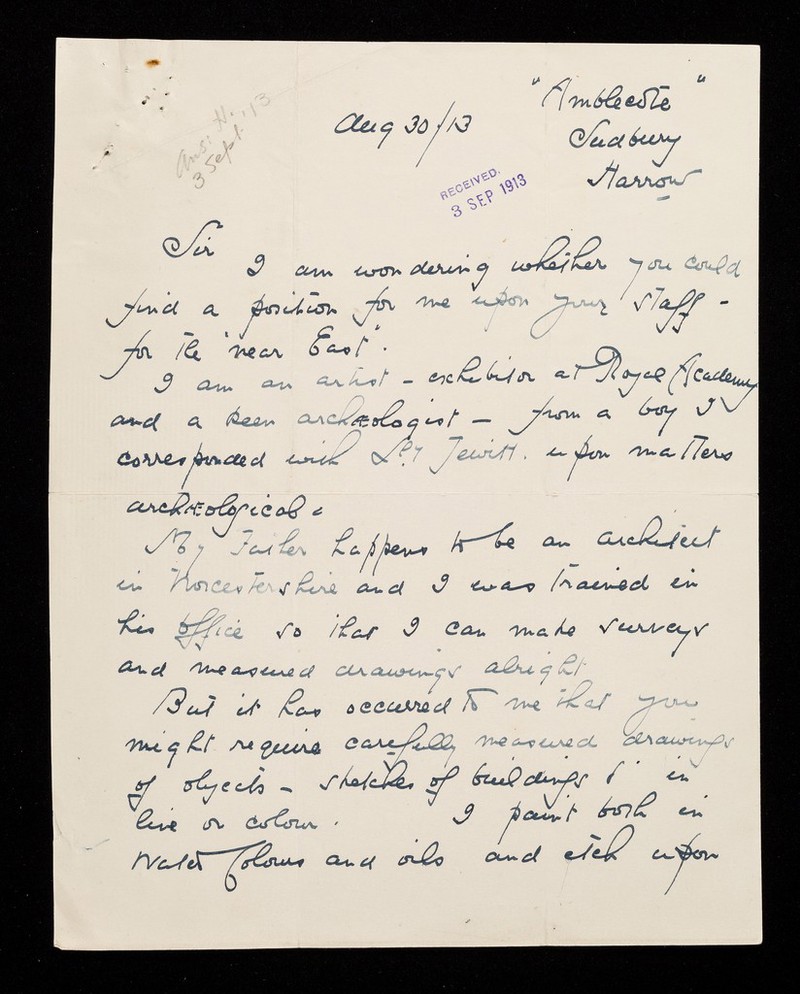 Ans: H. '13
3 Sept.
Aug 30/13
"Amblecote"
Sudbury
Harrow
RECEIVED.
3 SEP 1913
Sir
I am wondering whether you could
find a position for me upon your staff -
for the "near East".
I am an artist - exhibitor at Royal Academy
and a keen archæologist - from a boy I
corresponded with Ll. Jewitt. upon matters
archæological.
My Father happens to be an architect
in Worcestershire and I was trained in
his office so that I can make surveys
and measured drawings alright
But it has occurred to me that you
might require carefully measured drawings
of objects - sketches of buildings &c in
line or colour. I paint both in
Water Colours and oils and etch upon